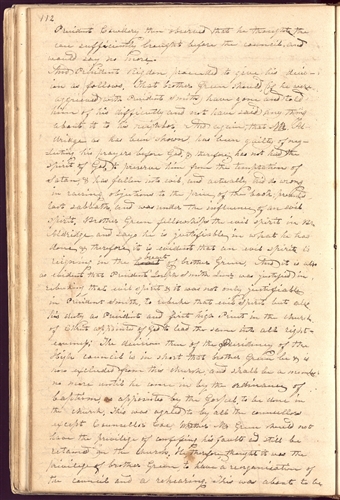 112
President Cowdery then observed that he thought the
case sufficiently brought before the council, and
would say no more.
President Rigdon proceeded to give his deci-
ion as follows. That brother Green should, if he were
aggrieved with President Smith, have gone and told
him of his difficulty and not have said any thing
about it to his neighbor, And again, that Mr Al-
dridge as has been shewn has been guilty of neg-
lecting his prayers before God, & therefore has not had the
spirit of God, to preserve him from the temptations of
Satan, & has fallen into evil, and actually did do wrong
in raising objections to the price of this book, presented
last sabbath, and was under the influence of an evil
spirit, Brother Green fellowships the evil spirit in Mr
Aldridge and says he is justifiable, in what he has
done, & therefore, it is evident that an evil spirit is
reigning in the breast of brother Green. And it is also
as evident that President Joseph Smith Junr was justified in
rebuking that evil spirit & it was not only justifiable
in President Smith, to rebuke that evil spirit but also
his duty as President and first high Priest in the church
of Christ appointed of God to lead the same into all right-
eousness. The decision then of the Presidency of the
High council is in short that brother Green be & is
now excluded from this church, and shall be a member
no more until he come in by the ordinance of
baptism, as appointed by the Gospel, to be done in
the church, This was agreed to by all the councellors
except Councellor Coe, Whether Mr Green should not
have the privilege of confessing his faults and still be
retained in the Church, He therefore thought it was the
privilege of brother Green to have a reorganization of
the council and a rehearing, This was about to be